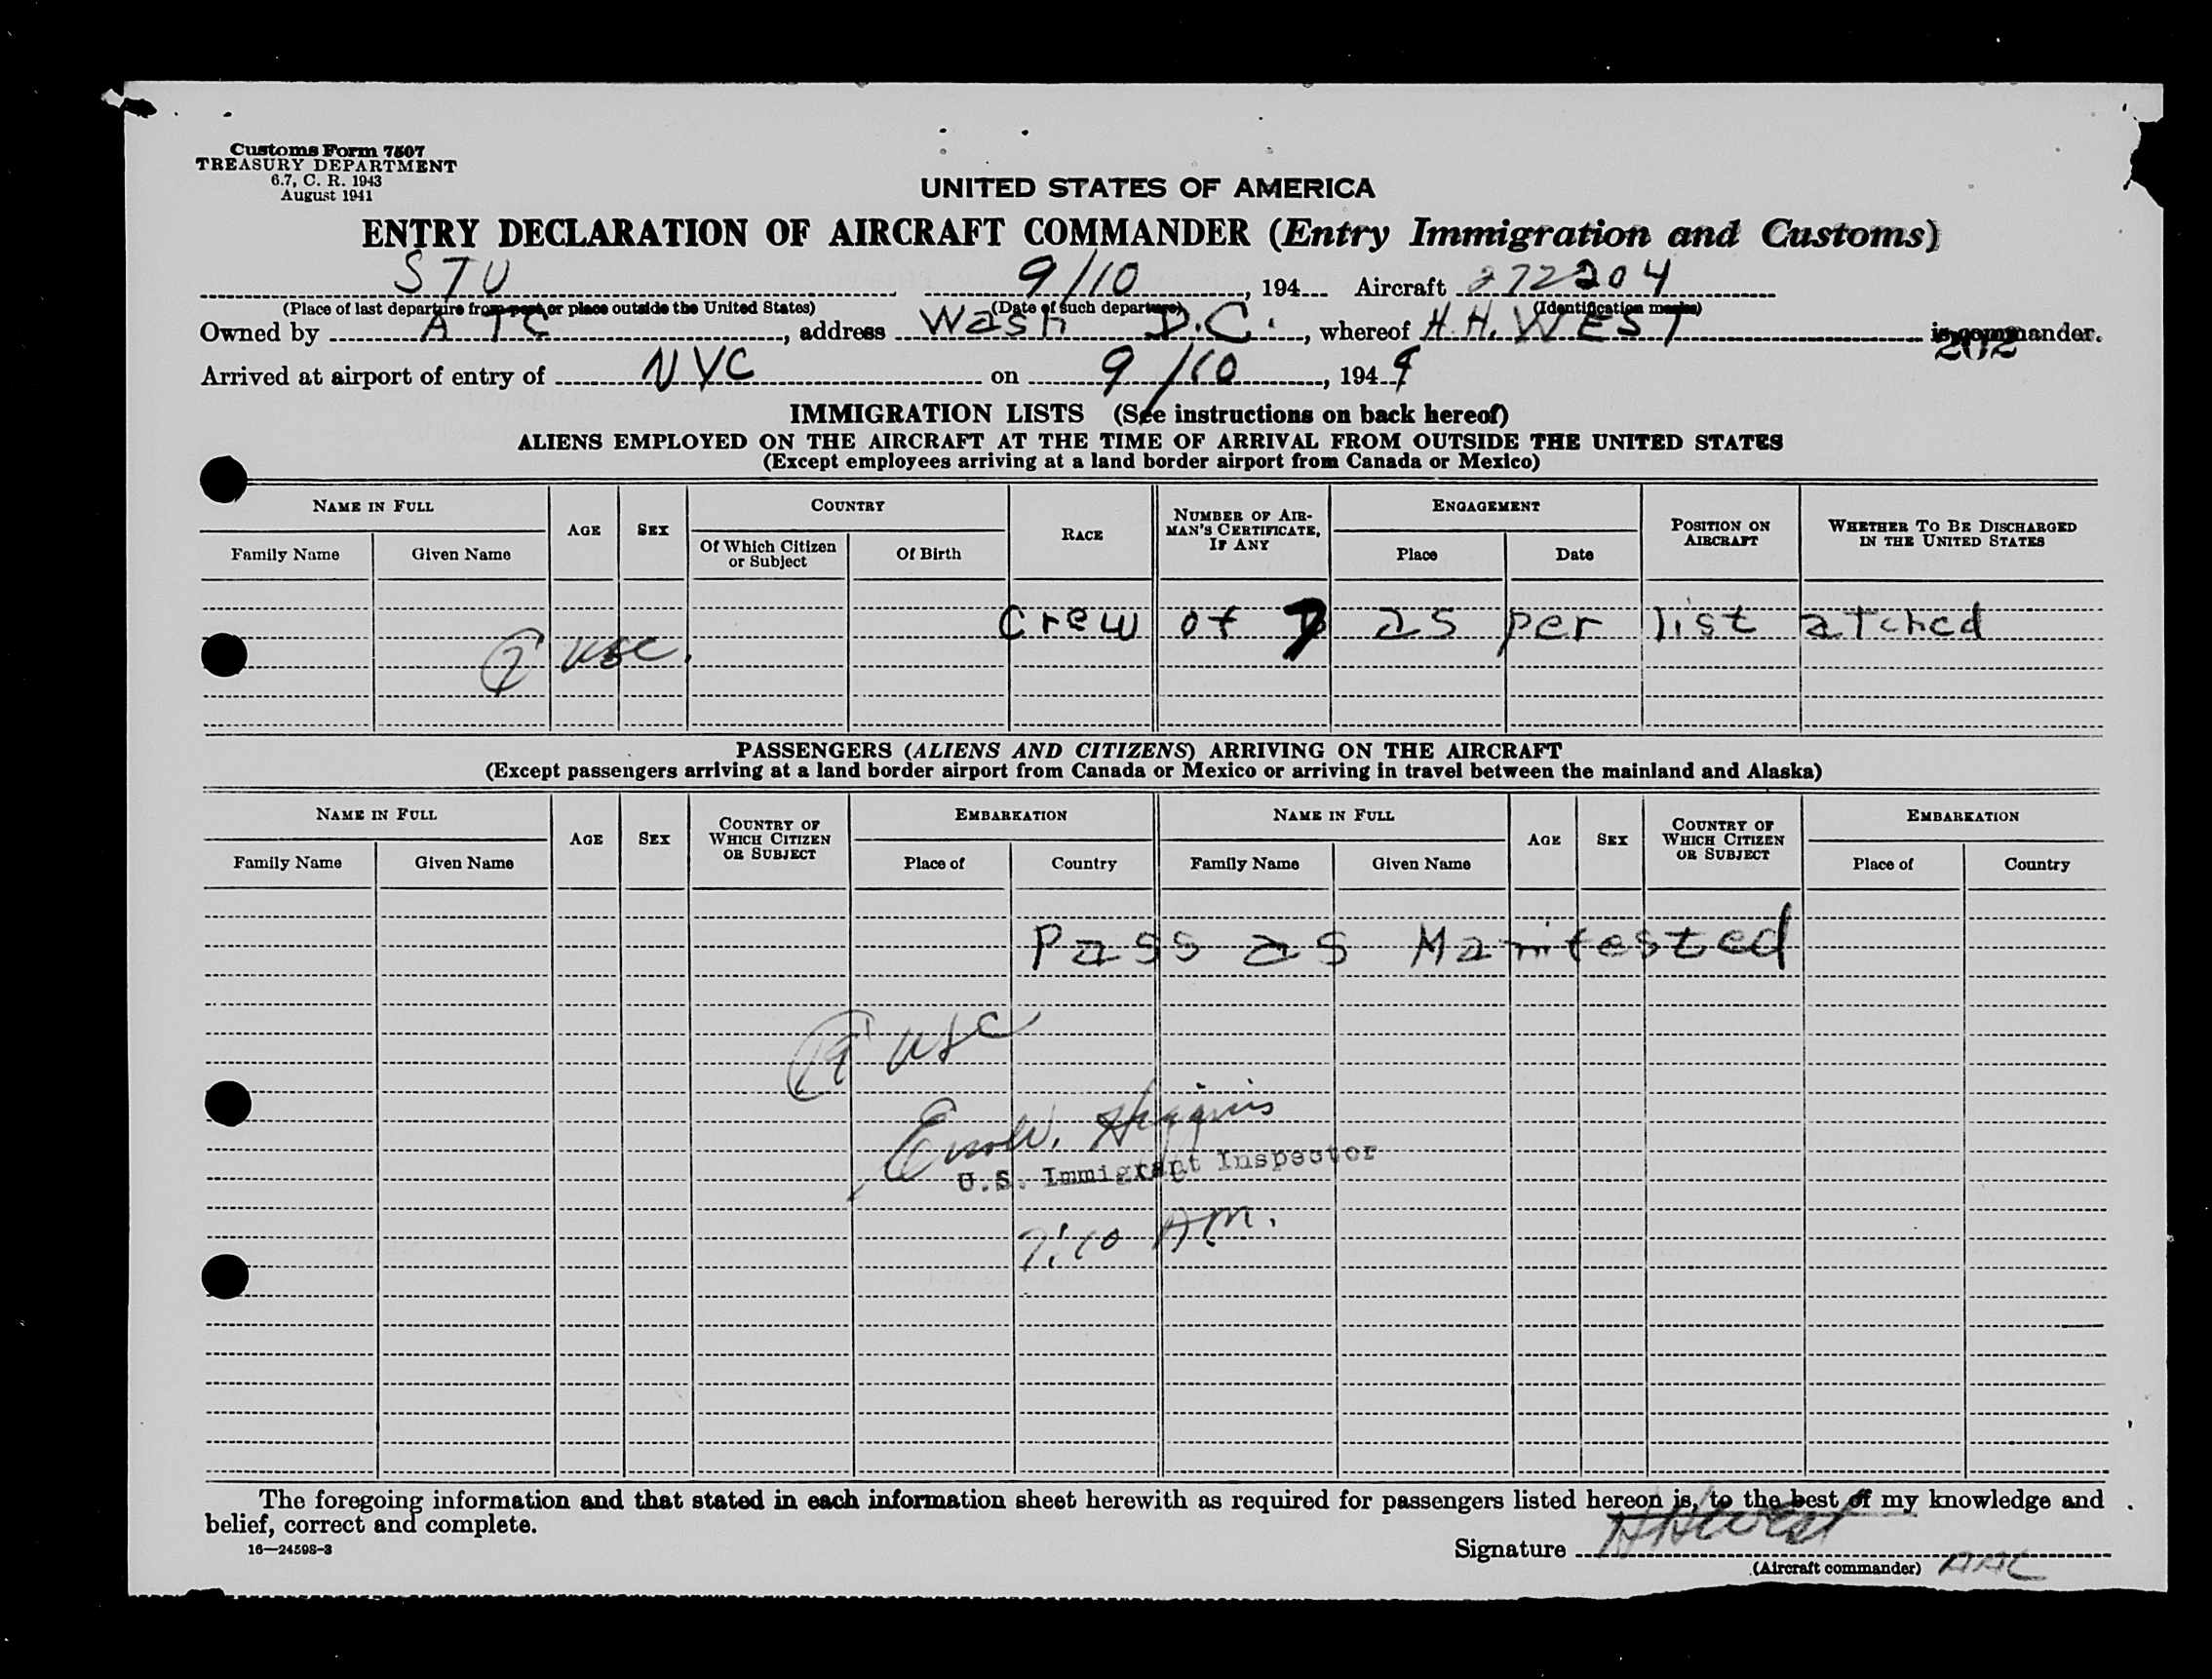 Customs Form 7507
TREASURY DEPARTMENT
6.7, C. R. 1943
August 1941
UNITED STATES OF AMERICA
ENTRY DECLARATION OF AIRCRAFT COMMANDER (Entry Immigration and Customs)
STU 9/10, 194 Aircraft 272204
(Place of last departure from port or place outside the United States) (Date of such departure) (Identification marks)
Owned by ATC, address Wash D.C., whereof H.H. WEST is commander.
202
Arrived at airport of entry of NYC on 9/10, 194
IMMIGRATION LISTS (See instructions on back hereof)
ALIENS EMPLOYED ON THE AIRCRAFT AT THE TIME OF ARRIVAL FROM OUTSIDE THE UNITED STATES
(Except employees arriving at a land border airport from Canada or Mexico)
NAME IN FULL AGE SEX COUNTRY RACE NUMBER OF AIRMAN'S CERTIFICATE, IF ANY ENGAGEMENT POSITION ON AIRCRAFT WHETHER TO BE DISCHARGED IN THE UNITED STATES
Family Name Given Name Of Which Citizen or Subject Of Birth Place Date
Crew of 7 as per list atched
7 USC.
PASSENGERS (ALIENS AND CITIZENS) ARRIVING ON THE AIRCRAFT
(Except passengers arriving at a land border airport from Canada or Mexico or arriving in travel between the mainland and Alaska)
NAME IN FULL AGE SEX COUNTRY OF WHICH CITIZEN OR SUBJECT EMBARKATION NAME IN FULL AGE SEX COUNTRY OF WHICH CITIZEN OR SUBJECT EMBARKATION
Family Name Given Name Place of Country Family Name Given Name Place of Country
Pass as Manifested
USC
W. Higgins
U.S. Immigrant Inspector
7:10 AM.
The foregoing information and that stated in each information sheet herewith as required for passengers listed hereon is, to the best of my knowledge and
belief, correct and complete.
16—24598-3
Signature HHWest
(Aircraft commander)